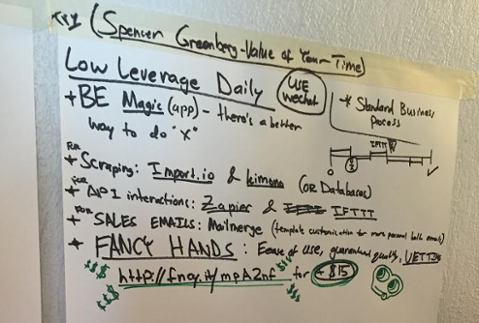 KEY (Spencer Greenberg - Value of Your Time)
Low Leverage Daily
USE wechat
+ BE Magic (app) - there's a better
way to do "x"
* Standard Business
Process
IFTTT
FOR
* Scraping: Import.io & kimono (OR Databases)
FOR
* API interactions: Zapier & IFTTT
FOR
* SALES EMAILS: Mailmerge (template customization for more personal bulk emails)
* FANCY HANDS: Ease of use, guaranteed quality, VETTED
$$$ http://fncy.it/mpAZnf $$$ for + $15
$$$ $$$